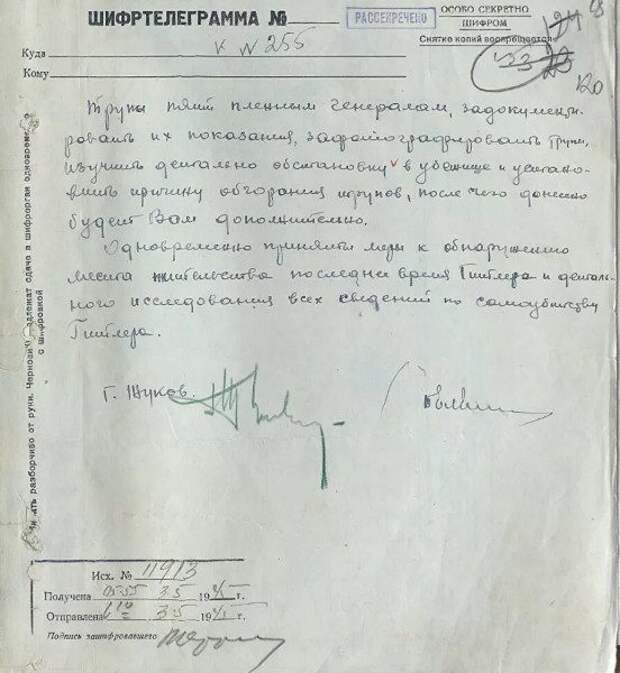 ШИФРТЕЛЕГРАММА №
РАССЕКРЕЧЕНО
ОСОБО СЕКРЕТНО
ШИФРОМ
Снятие копий воспрещается
Куда К N 255
Кому
120
Трупы пяти пленным генералам, задокументи-
ровать их показания, зафотографировать трупы,
изучить детально обстановку в убежище и устано-
вить причину обгорания трупов, после чего донесено
будет Вам дополнительно.
Одновременно приняты меры к обнаружению
места жительства последнее время Гитлера и деталь-
ного исследования всех сведений по самоубийству
Гитлера.
Г. Жуков.
разборчиво от руки. Черновик
сдаче в шифрорган
с шифровкой
Исх. № 11913
Получена 05.55 3.5 1945 г.
Отправлена 3.5 1945 г.
Подпись зашифровавшего